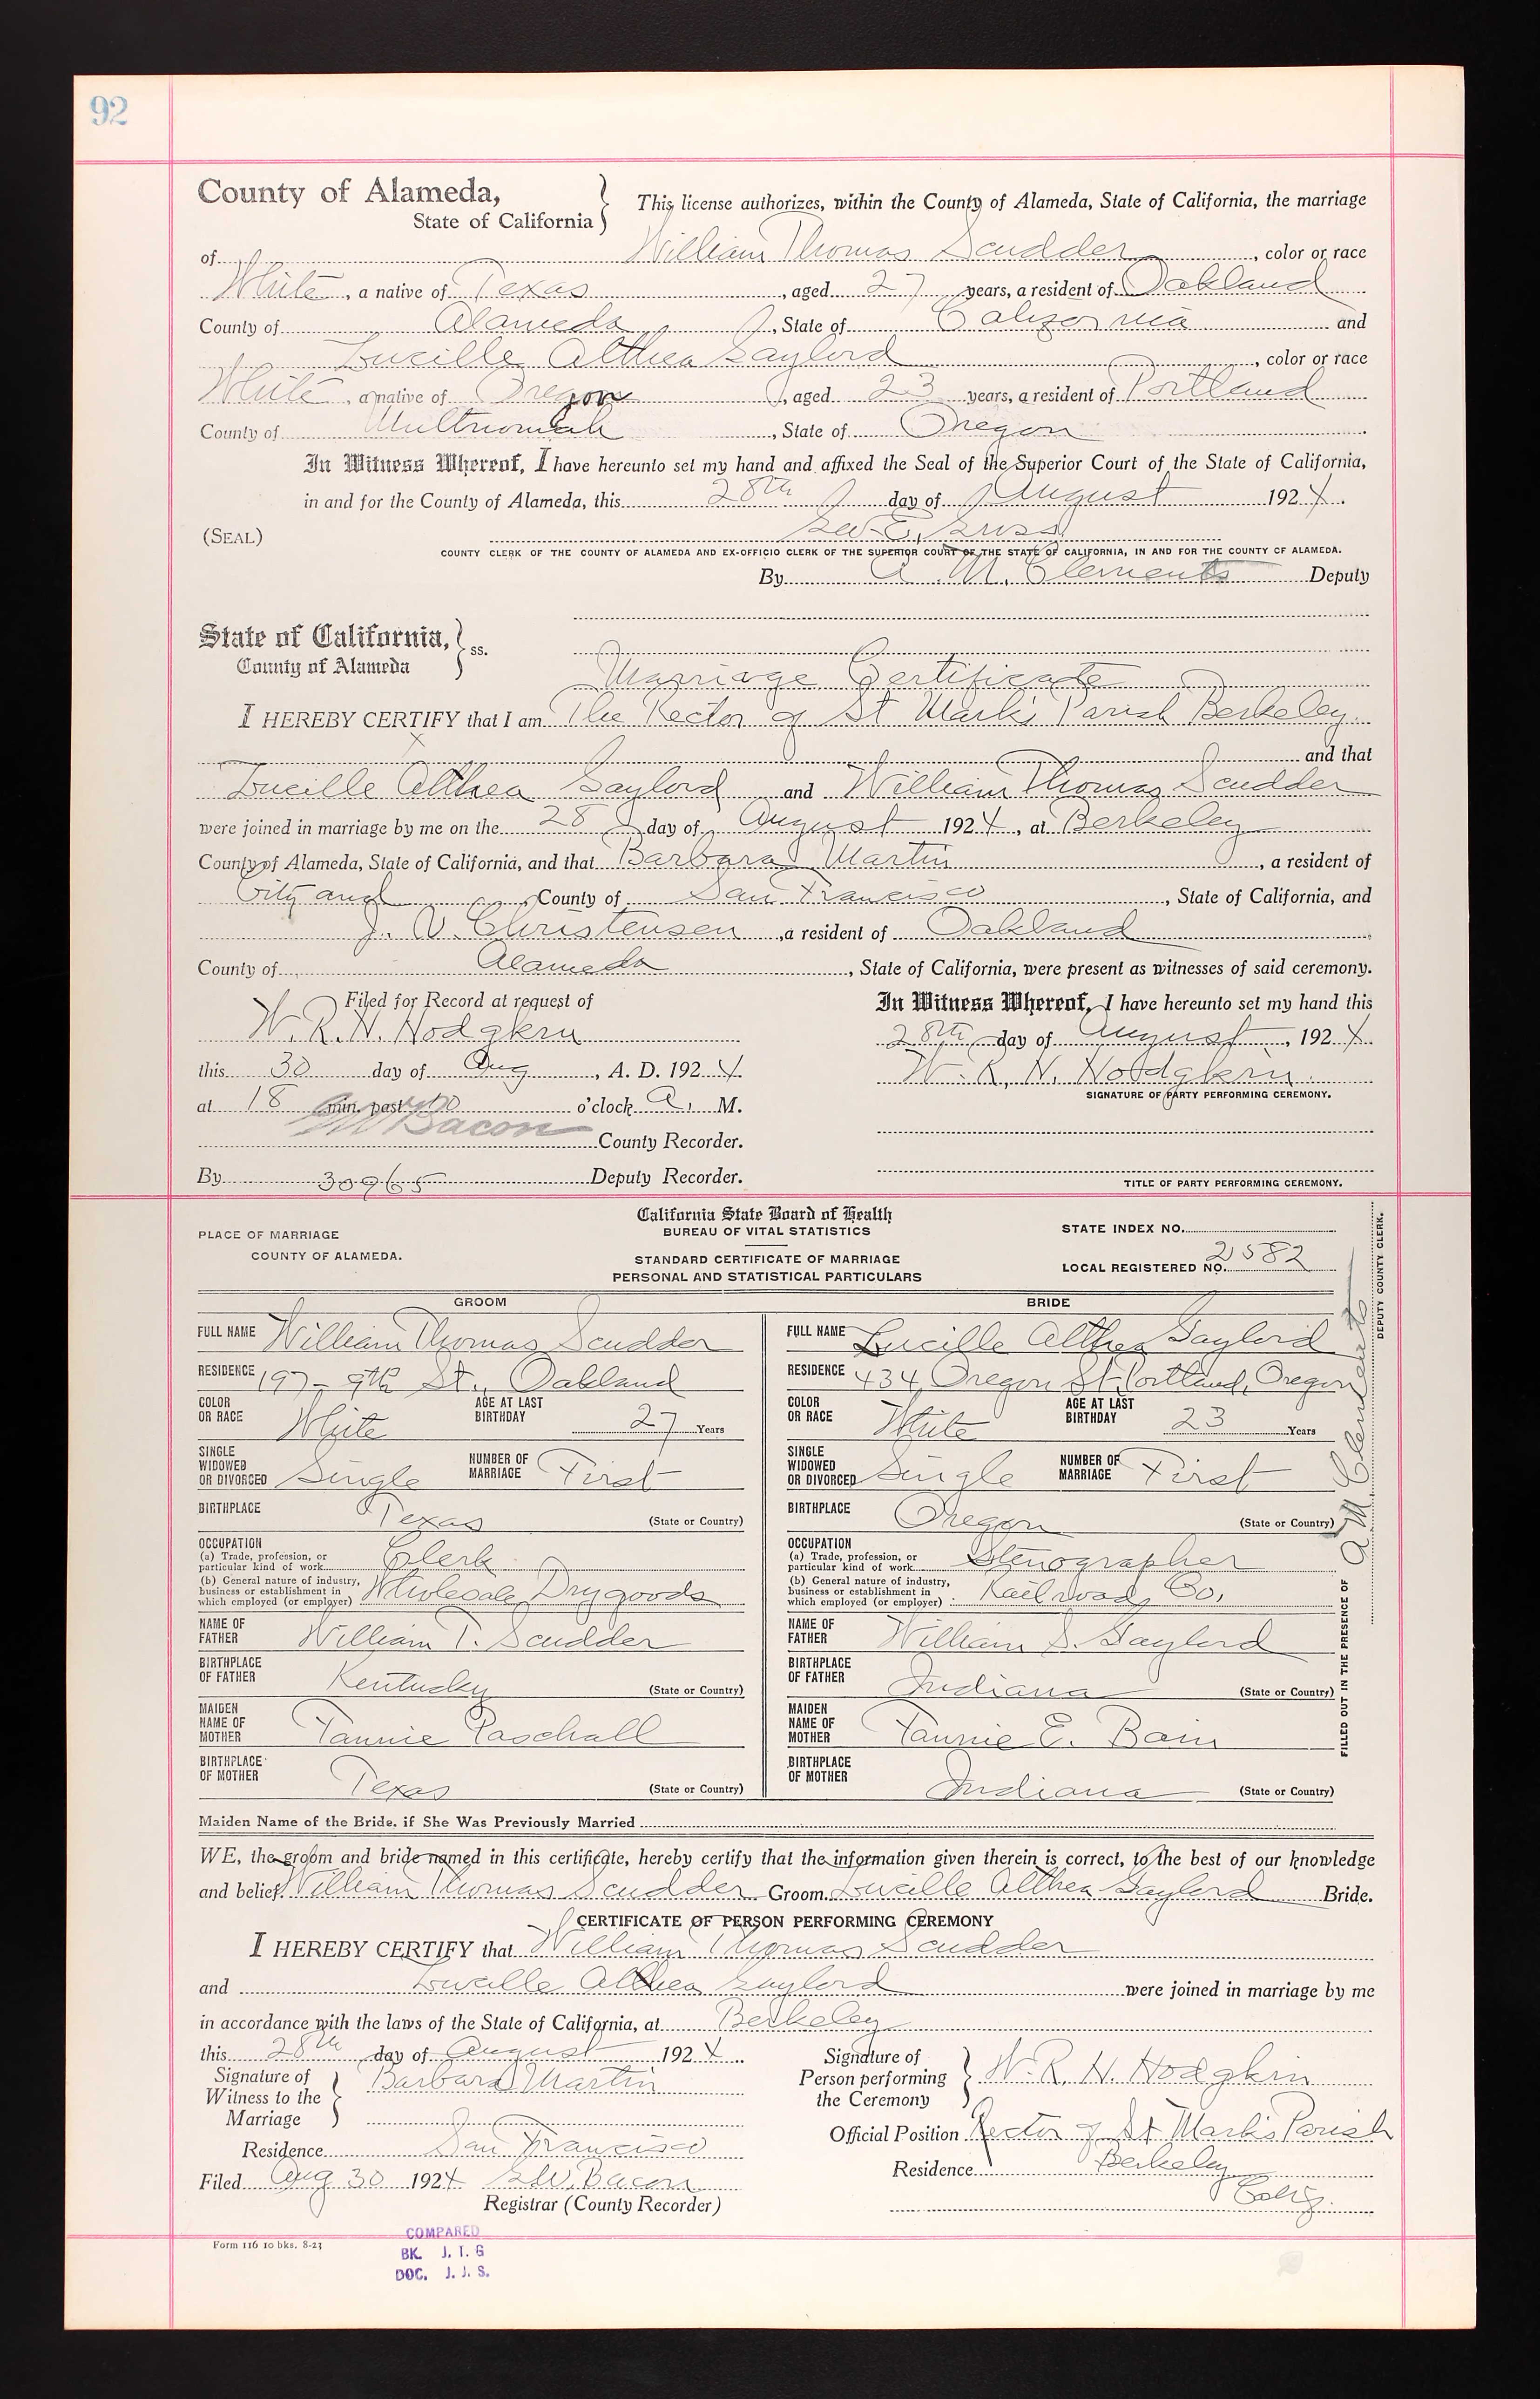 92
County of Alameda,
State of California
This license authorizes, within the County of Alameda, State of California, the marriage
of William Thomas Scudder, color or race
White, a native of Texas, aged 27 years, a resident of Oakland
County of Alameda, State of California and
Lucille Althea Gaylord, color or race
White, a native of Oregon, aged 23 years, a resident of Portland
County of Multnomah, State of Oregon
In Witness Whereof, I have hereunto set my hand and affixed the Seal of the Superior Court of the State of California,
in and for the County of Alameda, this 28th day of August 1924.
(SEAL) Geo. E. Gross
COUNTY CLERK OF THE COUNTY OF ALAMEDA AND EX-OFFICIO CLERK OF THE SUPERIOR COURT OF THE STATE OF CALIFORNIA, IN AND FOR THE COUNTY OF ALAMEDA.
By A. M. Clements Deputy
State of California,
County of Alameda
ss.
Marriage Certificate
I HEREBY CERTIFY that I am The Rector of St Mark's Parish Berkeley
and that
Lucille Althea Gaylord and William Thomas Scudder
were joined in marriage by me on the 28 day of August 1924, at Berkeley
County of Alameda, State of California, and that Barbara Martin, a resident of
City and County of San Francisco, State of California, and
J. V. Christensen, a resident of Oakland
County of Alameda, State of California, were present as witnesses of said ceremony.
Filed for Record at request of
W. R. H. Hodgkin
this 30 day of Aug, A. D. 1924
at 18 min. past o'clock A. M.
GW Bacon County Recorder.
By 30965 Deputy Recorder.
In Witness Whereof, I have hereunto set my hand this
28th day of August, 1924.
W. R. H. Hodgkin
SIGNATURE OF PARTY PERFORMING CEREMONY.
TITLE OF PARTY PERFORMING CEREMONY.
PLACE OF MARRIAGE
COUNTY OF ALAMEDA.
California State Board of Health
BUREAU OF VITAL STATISTICS
STANDARD CERTIFICATE OF MARRIAGE
PERSONAL AND STATISTICAL PARTICULARS
STATE INDEX NO.
LOCAL REGISTERED NO. 2582
GROOM
FULL NAME William Thomas Scudder
RESIDENCE 197-9th St., Oakland
COLOR OR RACE White AGE AT LAST BIRTHDAY 27 Years
SINGLE WIDOWED OR DIVORCED Single NUMBER OF MARRIAGE First
BIRTHPLACE Texas (State or Country)
OCCUPATION
(a) Trade, profession, or particular kind of work Clerk
(b) General nature of industry, business or establishment in which employed (or employer) Wholesale Drygoods
NAME OF FATHER William T. Scudder
BIRTHPLACE OF FATHER Kentucky (State or Country)
MAIDEN NAME OF MOTHER Fannie Paschall
BIRTHPLACE OF MOTHER Texas (State or Country)
BRIDE
FULL NAME Lucille Althea Gaylord
RESIDENCE 434 Oregon St. Portland, Oregon
COLOR OR RACE White AGE AT LAST BIRTHDAY 23 Years
SINGLE WIDOWED OR DIVORCED Single NUMBER OF MARRIAGE First
BIRTHPLACE Oregon (State or Country)
OCCUPATION
(a) Trade, profession, or particular kind of work Stenographer
(b) General nature of industry, business or establishment in which employed (or employer) Railroad Co.
NAME OF FATHER William S. Gaylord
BIRTHPLACE OF FATHER Indiana (State or Country)
MAIDEN NAME OF MOTHER Fannie E. Bain
BIRTHPLACE OF MOTHER Indiana (State or Country)
FILLED OUT IN THE PRESENCE OF A. M. Clements
DEPUTY COUNTY CLERK.
Maiden Name of the Bride. if She Was Previously Married
WE, the groom and bride named in this certificate, hereby certify that the information given therein is correct, to the best of our knowledge
and belief. William Thomas Scudder Groom. Lucille Althea Gaylord Bride.
CERTIFICATE OF PERSON PERFORMING CEREMONY
I HEREBY CERTIFY that William Thomas Scudder
and Lucille Althea Gaylord were joined in marriage by me
in accordance with the laws of the State of California, at Berkeley
this 28th day of August 1924
Signature of Witness to the Marriage Barbara Martin
Residence San Francisco
Filed Aug 30 1924 G.W. Bacon
Registrar (County Recorder)
Signature of Person performing the Ceremony W. R. H. Hodgkin
Official Position Rector of St Mark's Parish
Residence Berkeley
Calif.
Form 116 10 bks. 8-23
COMPARED
BK. J. T. G
DOC. J. J. S.